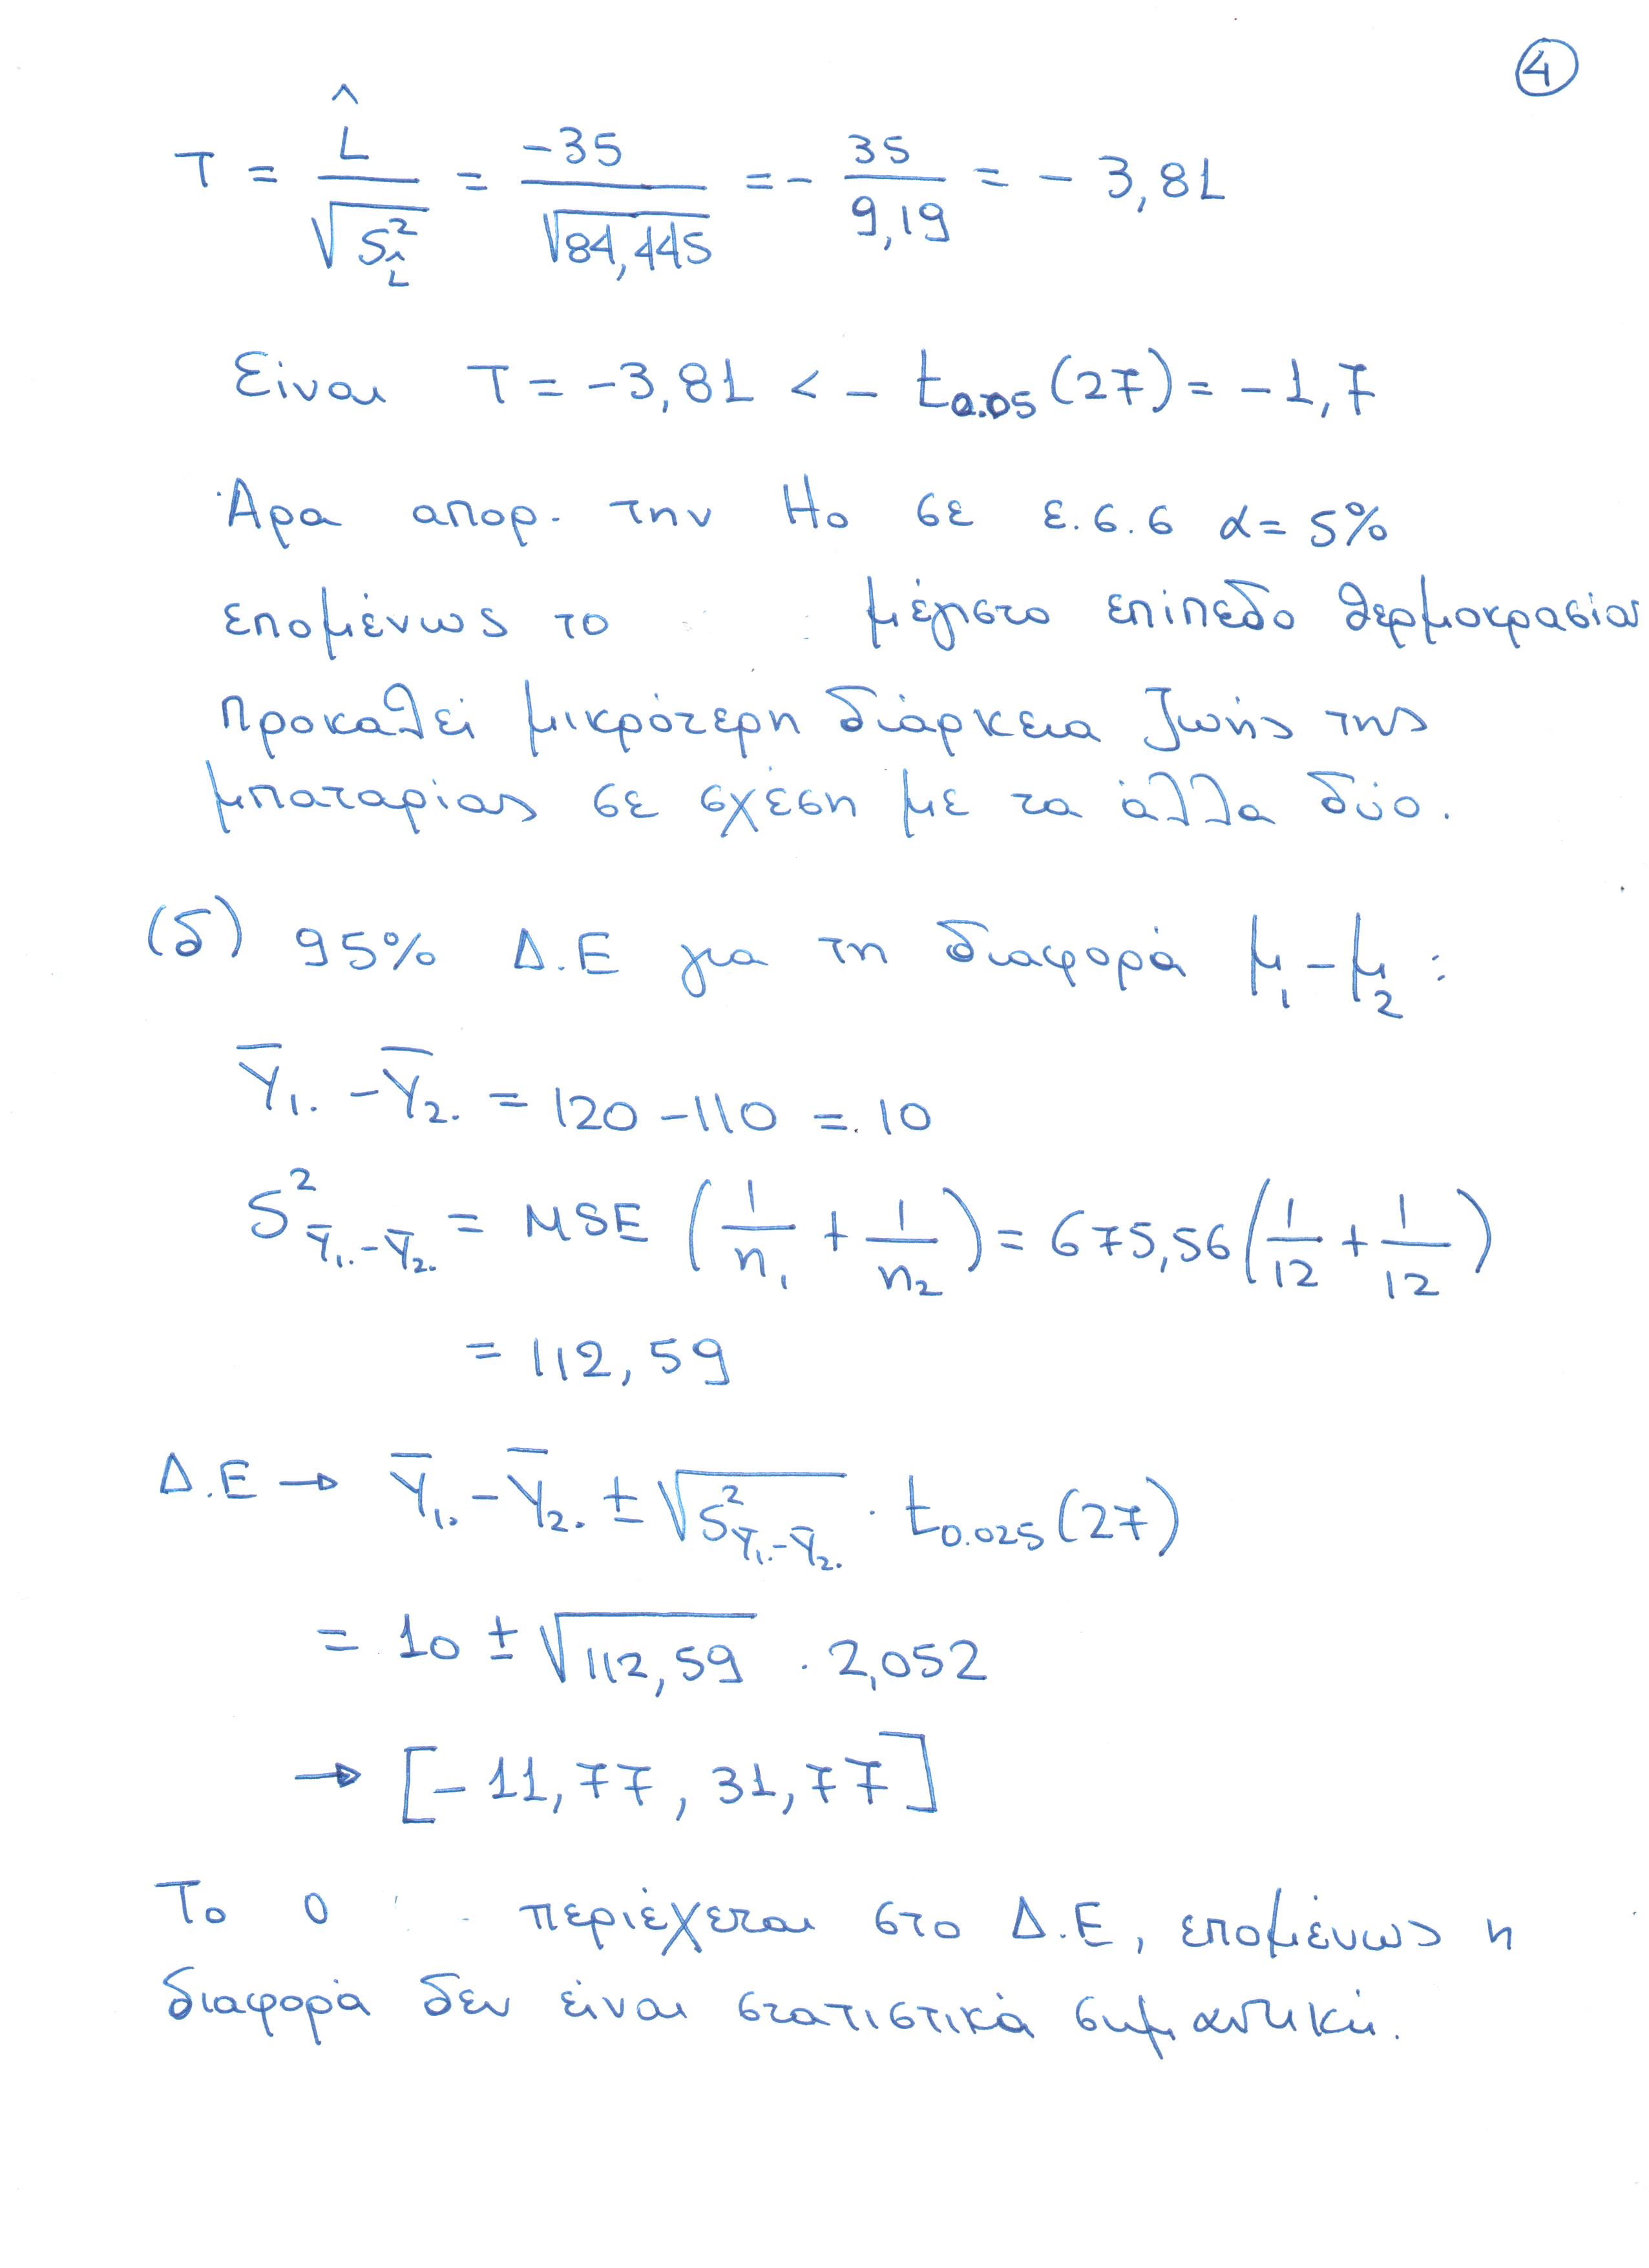 4
T = L̂ / √(S²_L̂) = -35 / √84,445 = - 35 / 9,19 = - 3,81
Είναι T = -3,81 < - t0.05 (27) = -1,7
Άρα απορ. την Ηο σε ε.σ.σ α = 5%
επομένως το μέγιστο επίπεδο θερμοκρασίας
προκαλεί μικρότερη διάρκεια ζωής της
μπαταρίας σε σχέση με τα άλλα δύο.
(δ) 95% Δ.Ε για τη διαφορά μ₁ - μ₂ :
Ȳ₁. - Ȳ₂. = 120 - 110 = 10
S²_Ȳ₁.-Ȳ₂. = MSE (1/n₁ + 1/n₂) = 675,56 (1/12 + 1/12)
= 112,59
Δ.Ε → Ȳ₁. - Ȳ₂. ± √(S²_Ȳ₁.-Ȳ₂.) · t0.025 (27)
= 10 ± √112,59 · 2,052
→ [-11,77, 31,77]
Το 0 περιέχεται στο Δ.Ε, επομένως η
διαφορά δεν είναι στατιστικά σημαντική.